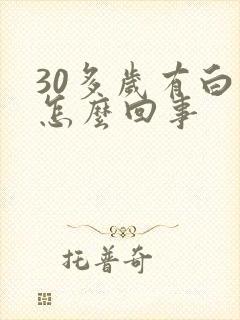 30多歲有白
怎麼回事
托普奇